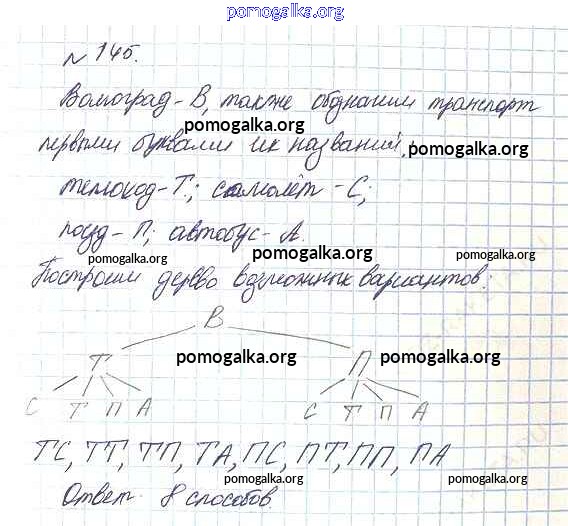 pomogalka.org
№ 145.
Волгоград - В, также обозначим транспорт
pomogalka.org
первыми буквами их названий,
pomogalka.org
теплоход - Т; самолёт - С;
pomogalka.org
pomogalka.org
поезд - П; автобус - А.
pomogalka.org
Построим дерево возможных вариантов:
pomogalka.org
В
Т П
pomogalka.org pomogalka.org
С Т П А С Т П А
ТС, ТТ, ТП, ТА, ПС, ПТ, ПП, ПА
Ответ: 8 способов.
pomogalka.org
pomogalka.org